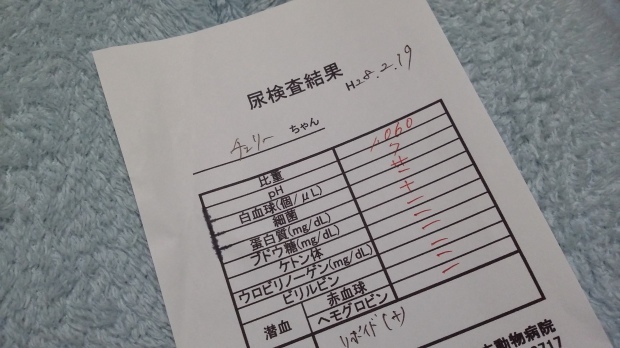 尿検査結果
H28.2.19
チェリー ちゃん
比重 1.060
pH 7
白血球(個/μL)
細菌
蛋白質(mg/dL) +
ブドウ糖(mg/dL) −
ケトン体 −
ウロビリノーゲン(mg/dL) −
ビリルビン −
潜血 赤血球 −
ヘモグロビン
リポイド(+)
動物病院
717